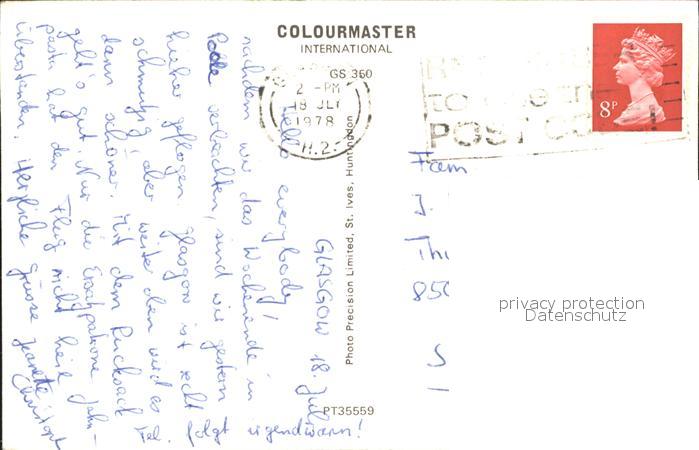 COLOURMASTER
INTERNATIONAL
GS 360
2 - PM
18 JLY
1978
H.2
POST CO
8P
GLASGOW 18. Juli
Hello everybody!
nachdem wir das Wochenende in
Poole verbrachten, sind wir gestern
hieher geflogen. Glasgow ist recht
schmutzig! aber weiter oben wird es
dann schöner. Mit dem Rucksack
geht's gut. Nur die Ersatzpatrone Zahn-
pasta hat den Flug nicht heil
überstanden. Herzliche Grüsse Jeanette
Christoph
Tel. folgt irgendwann!
Photo Precision Limited, St. Ives, Huntingdon
PT35559
Fam
J
Thi
850
S
privacy protection
Datenschutz